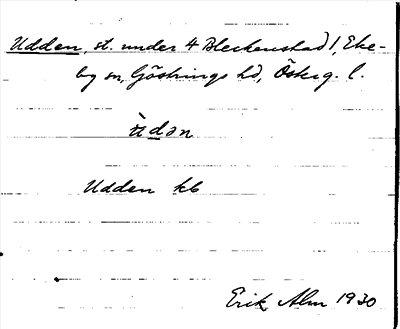 Udden, st. under 4 Bleckenstad 1, Eke-
by sn, Göstrings hd, Österg. l.
ùdən
Udden kb
Erik Alm 1930